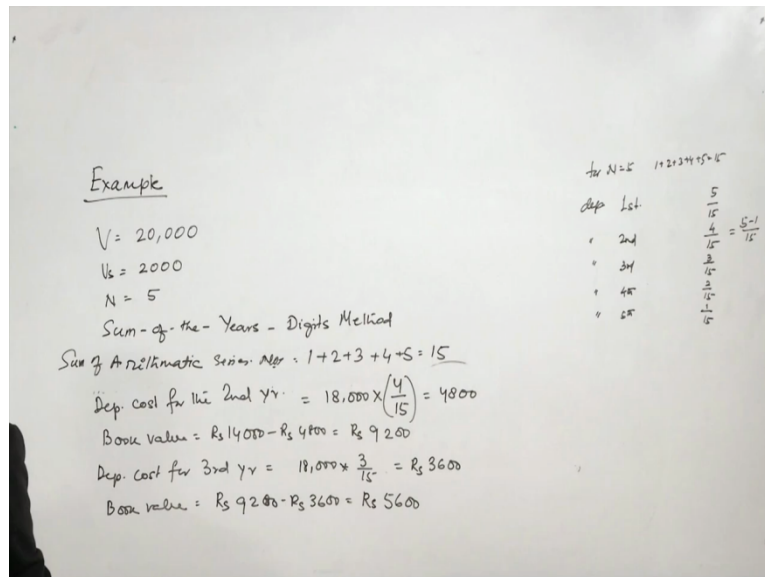 Example
V = 20,000
Vs = 2000
N = 5
Sum-of-the-Years-Digits Method
Sum of Arithmatic Series. : 1+2+3+4+5 = 15
Dep. cost for the 2nd yr. = 18,000 x (4/15) = 4800
Book value = Rs 14000 - Rs 4800 = Rs 9200
Dep. cost for 3rd yr = 18,000 x 3/15 = Rs 3600
Book value = Rs 9200 - Rs 3600 = Rs 5600
for N=5 1+2+3+4+5=15
dep 1st. 5/15
" 2nd 4/15 = 5-1/15
" 3rd 3/15
" 4th 2/15
" 5th 1/15